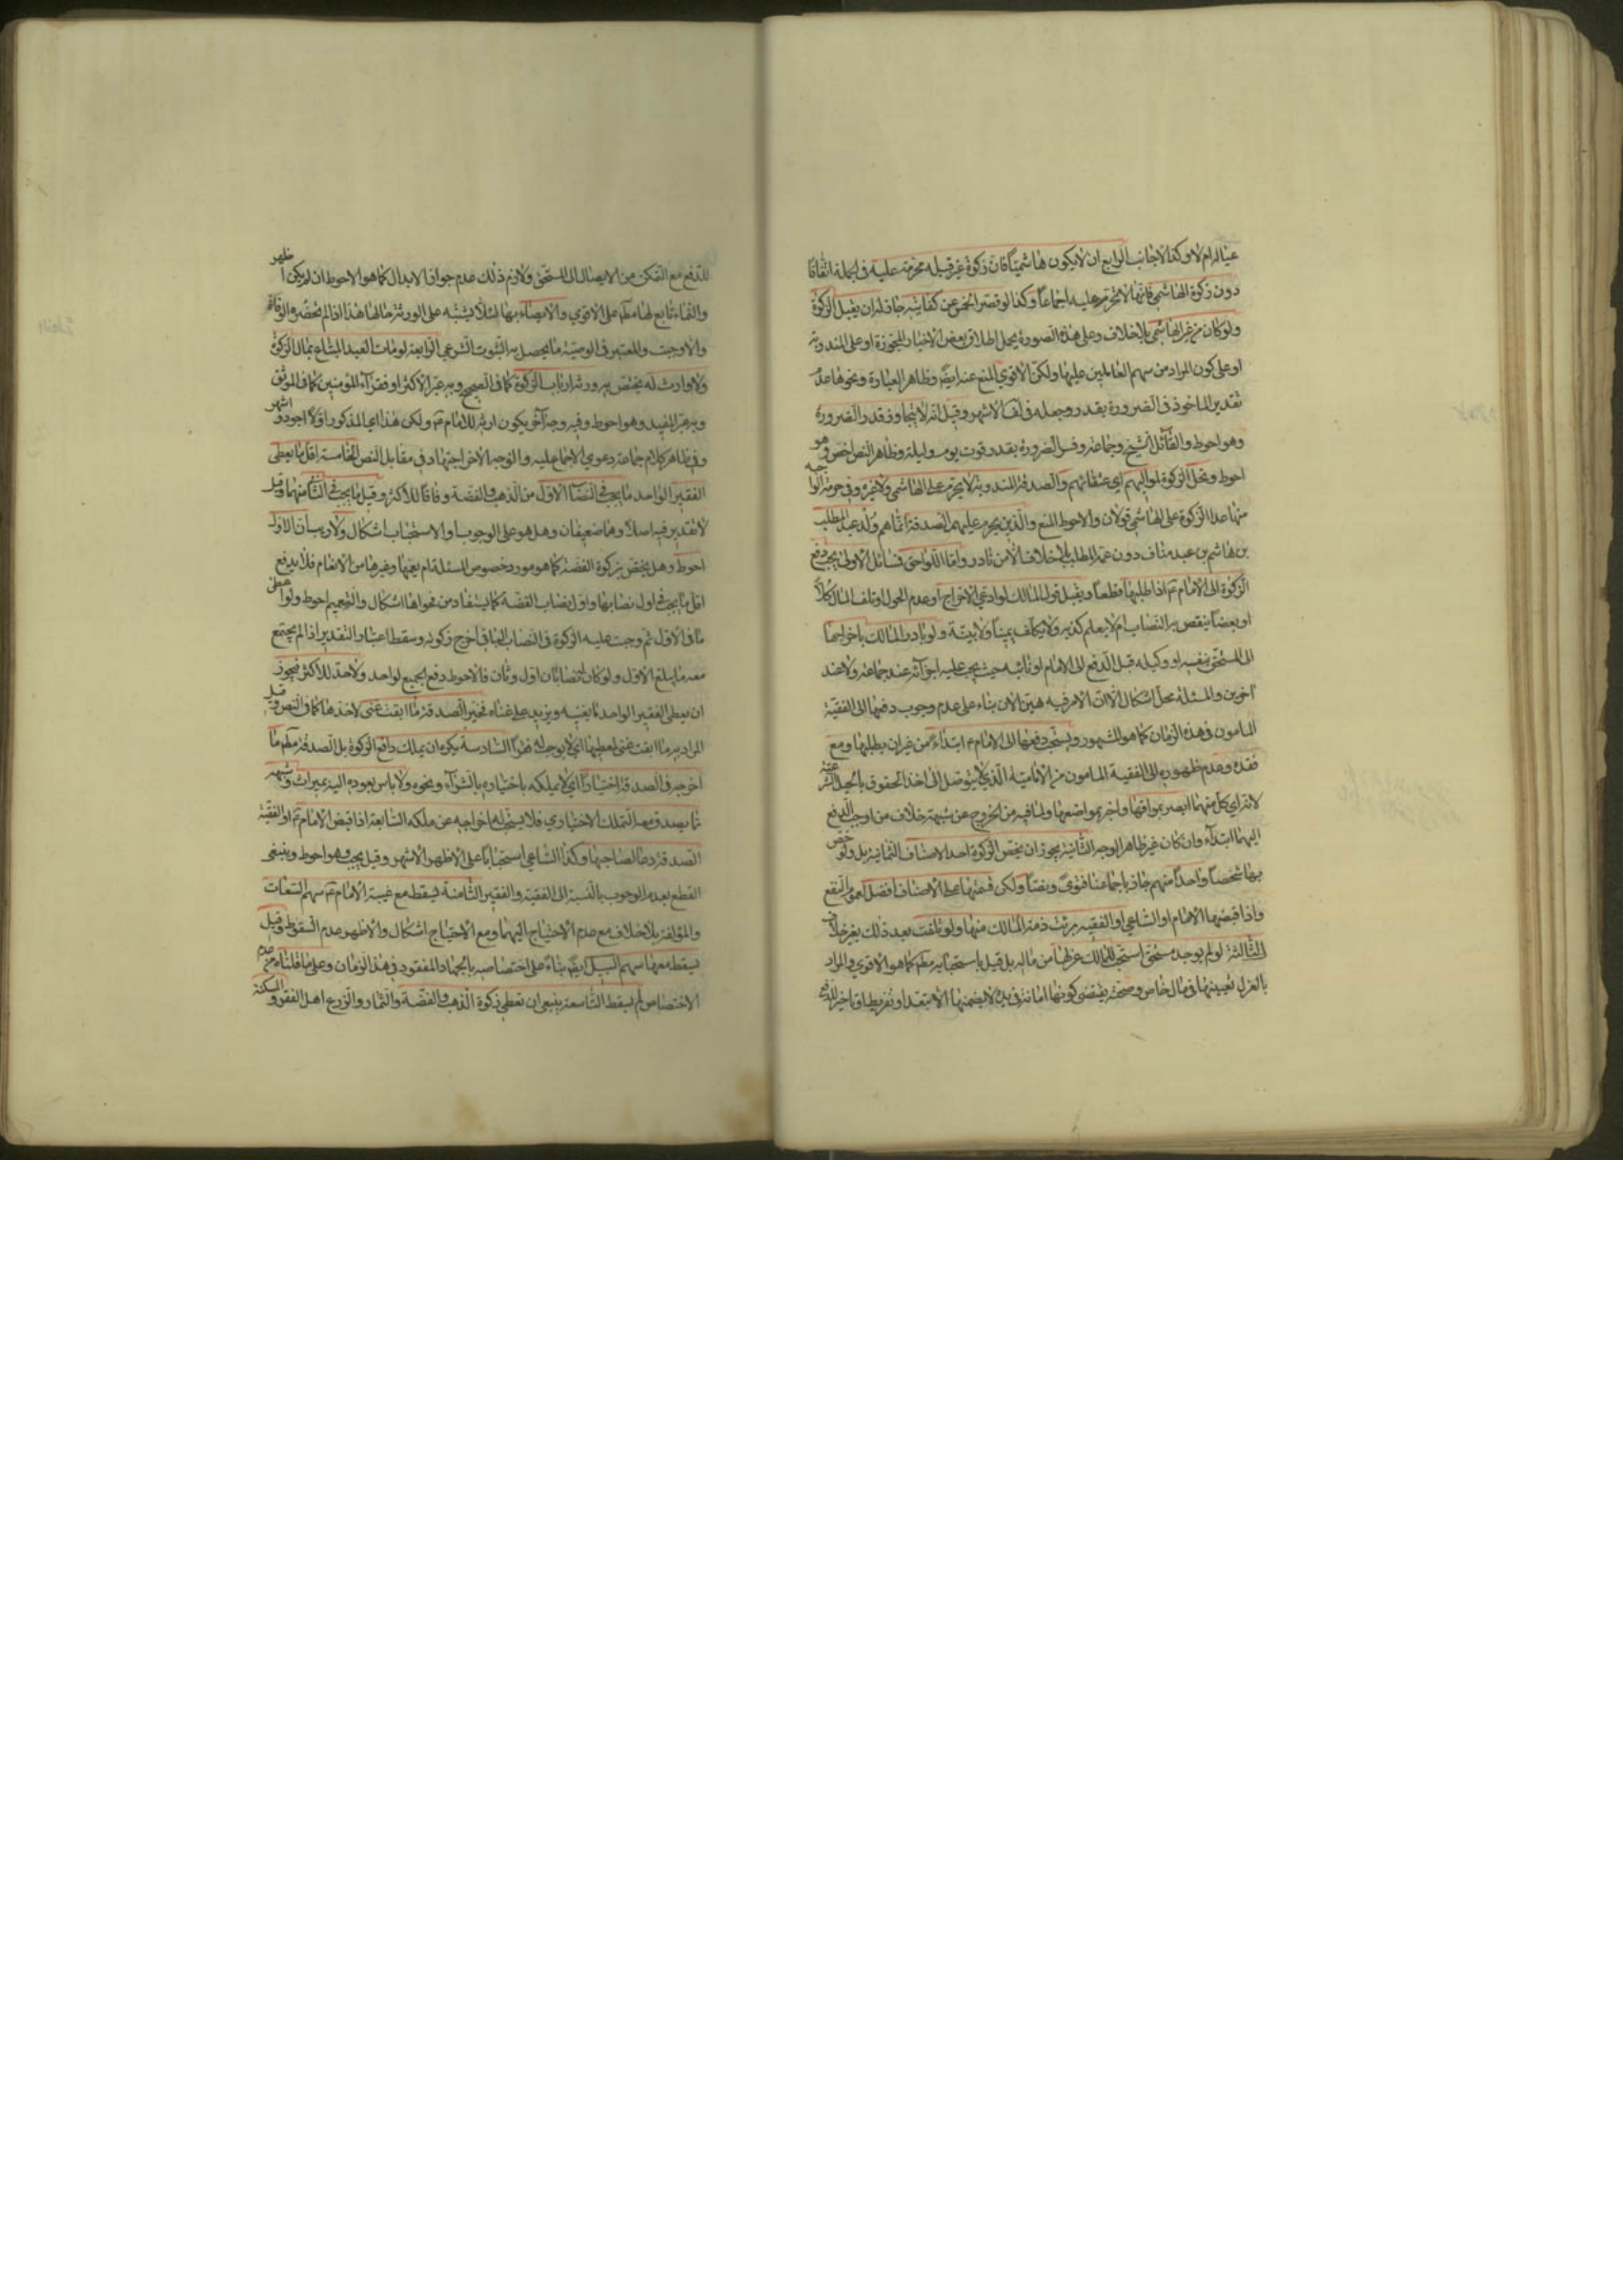 عياله ام لا وكذا الاجانب الرابع ان لا يكون هاشميّا فان زكوة غير قبيله محرمة عليه في الجملة اتفاقا
دون زكوة الهاشمي فانها لا تحرم عليه اجماعا وكذا لو قصر الخمس عن كفايته جاز له ان يقبل الزكوة
ولو كان من غير الهاشمي بلا خلاف وعلى هذه الصورة يحمل اطلاق بعض الاخبار المجوزة او على المندوبة
او على كون المراد من سهم العاملين عليها ولكن الاقوي المنع عنه ايضّ وظاهر العبارة ونحوها عدم
تقدير الماخوذ في الضرورة بقدر وجعله في لف الاشهر وقيل انه لا يتجاوز قدر الضرورة
وهو احوط والقائل الشيخ وجماعة وفسر الضرورة بقدر قوت يوم وليلة وظاهر النص اخص وهو
احوط وتحل الزكوة لمواليهم اي عتقائهم والصدقة المندوبة لا يحرم على الهاشمي ولا غيره وفي حرمة الواجبة
منها عدا الزكوة على الهاشمي قولان والاحوط المنع والذين يحرم عليهم الصدقة انما هم ولد عبد المطلب
بن هاشم بن عبد مناف دون عمه المطلب بلا خلاف الا من نادر واما اللواحق فمسائل الاولى يجب دفع
الزكوة الى الامام ع اذا طلبها قطعا ويقبل قول المالك لو ادعي الاخراج او عدم الحول او تلف المال كلا
او بعضا ينقص به النصاب ام لا يعلم كذبه ولا يكلف يمينا ولا بينة ولو بادر المالك باخراجها
الى المستحق بنفسه او وكيله قبل الدفع الى الامام او نائبه حيث يجب عليه اجزائه عند جماعة ولا عند
اخرين والمسئلة محل اشكال الا ان الامر فيه هين الان بناء على عدم وجوب دفعها الى الفقيه
المامون في هذه الزمان كما هو المشهور ويستحب دفعها الى الامام ع ابتداء من غير ان يطلبها ومع
فقده وعدم ظهوره الى الفقيه المامون من الامامية الذي لا يتوصل الى اخذ الحقوق بالحيل الشرعية
لانه اي كل منهما ابصر بمواقعها واخبر بمواضعها ولما فيه من الخروج عن شبهة خلاف من اوجب الدفع
اليهما ابتداء وان كان غير ظاهر الوجه الثانية يجوز ان يخص الزكوة احد الاصناف الثمانية بل ولو خص
بها شخصا واحدا منهم جاز باجماعنا فتوى ونصا ولكن قسمتها على الاصناف افضل لعموم النفع
واذا قبضها الامام او الساعي او الفقيه برئت ذمة المالك منها ولو تلفت بعد ذلك بغير خلاف
الثالثة لو لم يوجد مستحق استحب للمالك عزلها من ماله بل قيل باستحبابه مطم كما هو الاقوي والمراد
بالعزل تعيينها في مال خاص وصحته يقتضي كونها امانة في يده لا يضمنها الا بتعد او تفريط او تاخير الدفع
للدفع مع التمكن من الايصال الى المستحق ولازم ذلك عدم جواز الابدال كما هو الاحوط ان لم يكن اظهر
والنماء تابع لها مطم على الاقوي والايصاء بها لئلا يشتبه على الورثة حالها هذا اذا لم تحضره الوفاة
والا وجبت والمعتبر في الوصية ما يحصل به الثبوت الشرعي الرابعة لو مات العبد المبتاع بمال الزكوة
ولا وارث له يختص به ورثه ارباب الزكوة كما في الصحيح وبه عبر الاكثر او فقراء المؤمنين كما في الموثق
وبه عبر المفيد وهو احوط وفيه وجه اخر بكون ارثه للامام ع ولكن هذا اي المذكور اولا اجود واشهر
وفي ظاهر كلام جماعة دعوي الاجماع عليه والوجه الاخر اجتهاد في مقابل النص الخامسة اقل ما يعطى
الفقير الواحد ما يجب في النصاب الاول من الذهب والفضة وفاقا للاكثر وقيل ما يجب في الثاني منهما وقيل
لا تقدير فيه اصلا وهما ضعيفان وهل هو على الوجوب او الاستحباب اشكال ولا ريب ان الاول
احوط وهل يختص بزكوة الفضة كما هو مورد خصوص المسئلة ام يعمها وغيرها من الانعام فلا يدفع
اقل ما يجب في اول نصابها واول نصاب الفضة كما يستفاد من فحواها اشكال والتعميم احوط ولو اعطى
ما في الاول ثم وجبت عليه الزكوة في النصاب الثاني اخرج زكوته وسقط اعتبار التقدير اذا لم يجتمع
معه ما يبلغ الاول ولو كان له نصابان اول وثان فالاحوط دفع الجميع لواحد ولا حد للاكثر فيجوز
ان يعطى الفقير الواحد ما يغنيه ويزيد على غناه فخير الصدقة ما ابقت غنى لاخذها كما في النص وقيل
المراد به ما ابقت غنى لمعطيها اي لا يوجب له فقرا السادسة يكره ان يملك دافع الزكوة بل الصدقة مطم ما
اخرجه في الصدقة اختيارا اي لا يملكه باختياره بالشراء ونحوه ولا باس بعوده اليه بميراث وشبهه
مما يصدق معه التملك الاختياري فلا يستحب له اخراجه عن ملكه السابعة اذا قبض الامام ع او الفقيه
الصدقة دعا لصاحبها وكذا الساعي استحبابا على الاظهر الاشهر وقيل يجب وهو احوط وينبغي
القطع بعدم الوجوب بالنسبة الى الفقيه والفقير الثامنة يسقط مع غيبة الامام ع سهم السعاة
والمؤلفة بلا خلاف مع عدم الاحتياج اليهما ومع الاحتياج اشكال والاظهر عدم السقوط وقيل
يسقط معها سهم السبيل ايضّ بناء على اختصاصه بالجهاد المفقود في هذا الزمان وعلى ما قلناه من عدم
الاختصاص لم يسقط التاسعة ينبغي ان تعطى زكوة الذهب والفضة والثمار والزرع اهل الفقر والمسكنة